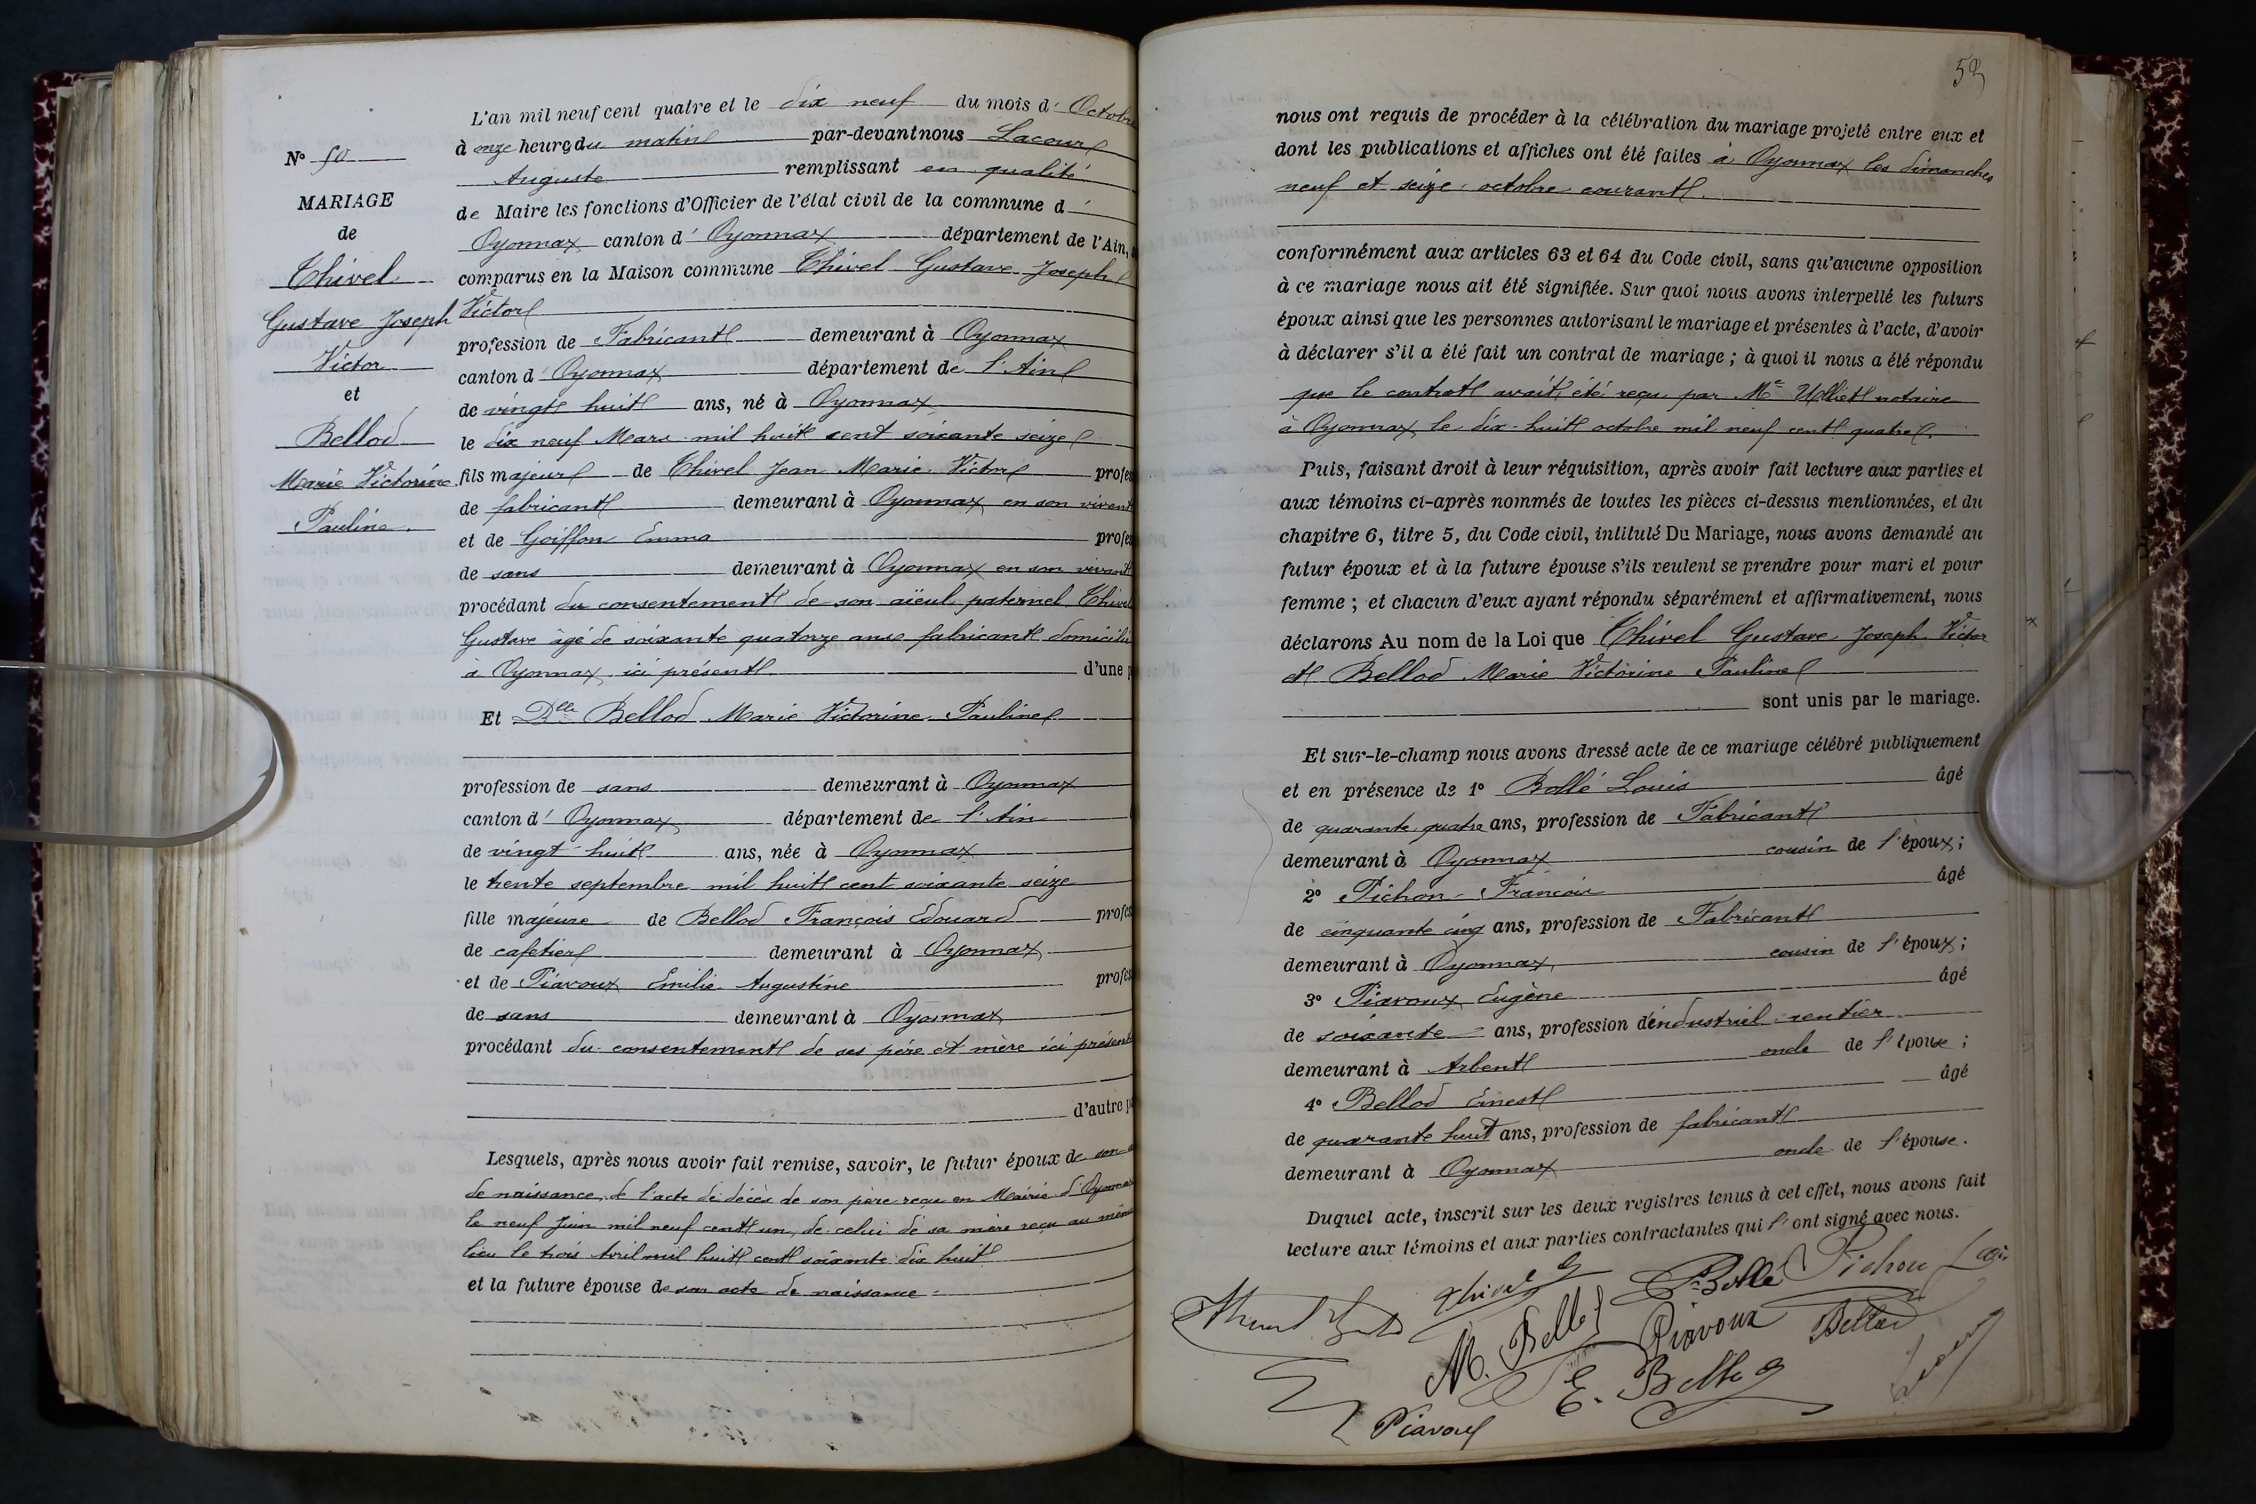 L'an mil neuf cent quatre et le dix neuf du mois d' Octobre
à onze heures du matin par-devant nous Lacour
Auguste remplissant en qualité
de Maire les fonctions d'Officier de l'état civil de la commune d'
Oyonnax canton d' Oyonnax département de l'Ain,
comparus en la Maison commune Thivel Gustave Joseph
Victor
profession de Fabricant demeurant à Oyonnax
canton d' Oyonnax département de l'Ain
de vingt huit ans, né à Oyonnax
le dix neuf Mars mil huit cent soixante seize
fils majeur de Thivel Jean Marie Victor profes
de fabricant demeurant à Oyonnax en son vivant
et de Goiffon Emma profes
de sans demeurant à Oyonnax en son vivant
procédant du consentement de son aïeul paternel Thivel
Gustave âgé de soixante quatorze ans fabricant domicilié
à Oyonnax ici présent d'une p
Et Dlle Bellod Marie Victorine Pauline
profession de sans demeurant à Oyonnax
canton d' Oyonnax département de l'Ain
de vingt huit ans, née à Oyonnax
le trente septembre mil huit cent soixante seize
fille majeure de Bellod François Edouard profes
de cafetier demeurant à Oyonnax
et de Piavoux Emilie Augustine profes
de sans demeurant à Oyonnax
procédant du consentement de ses père et mère ici présents
d'autre pa
Lesquels, après nous avoir fait remise, savoir, le futur époux de son
de naissance, de l'acte de décès de son père reçu en Mairie d'Oyonnax
le neuf Juin mil neuf cent un, de celui de sa mère reçu au même
lieu le trois Avril mil huit cent soixante dix huit
et la future épouse de son acte de naissance.
N° 50
MARIAGE
de
Thivel
Gustave Joseph
Victor
et
Bellod
Marie Victorine
Pauline.
53
nous ont requis de procéder à la célébration du mariage projeté entre eux et
dont les publications et affiches ont été faites à Oyonnax les dimanches
neuf et seize octobre courant.
conformément aux articles 63 et 64 du Code civil, sans qu'aucune opposition
à ce mariage nous ait été signifiée. Sur quoi nous avons interpellé les futurs
époux ainsi que les personnes autorisant le mariage et présentes à l'acte, d'avoir
à déclarer s'il a été fait un contrat de mariage ; à quoi il nous a été répondu
que le contrat avait été reçu par Me Ulliet notaire
à Oyonnax le dix-huit octobre mil neuf cent quatre.
Puis, faisant droit à leur réquisition, après avoir fait lecture aux parties et
aux témoins ci-après nommés de toutes les pièces ci-dessus mentionnées, et du
chapitre 6, titre 5, du Code civil, intitulé Du Mariage, nous avons demandé au
futur époux et à la future épouse s'ils veulent se prendre pour mari et pour
femme ; et chacun d'eux ayant répondu séparément et affirmativement, nous
déclarons Au nom de la Loi que Thivel Gustave Joseph Victor
et Bellod Marie Victorine Pauline
sont unis par le mariage.
Et sur-le-champ nous avons dressé acte de ce mariage célébré publiquement
et en présence de 1° Bollé Louis âgé
de quarante quatre ans, profession de Fabricant
demeurant à Oyonnax cousin de l'époux ;
2° Pichon Francois âgé
de cinquante cinq ans, profession de Fabricant
demeurant à Oyonnax cousin de l'époux ;
3° Piavoux Eugène âgé
de soixante ans, profession d'industriel rentier
demeurant à Arbent oncle de l'épouse ;
4° Bellod Ernest âgé
de quarante huit ans, profession de fabricant
demeurant à Oyonnax oncle de l'épouse.
Duquel acte, inscrit sur les deux registres tenus à cet effet, nous avons fait
lecture aux témoins et aux parties contractantes qui l'ont signé avec nous.
Thivel G Bollé Pichon
M. Bellod Piavoux Bellod
E. Bellod
Piavoux